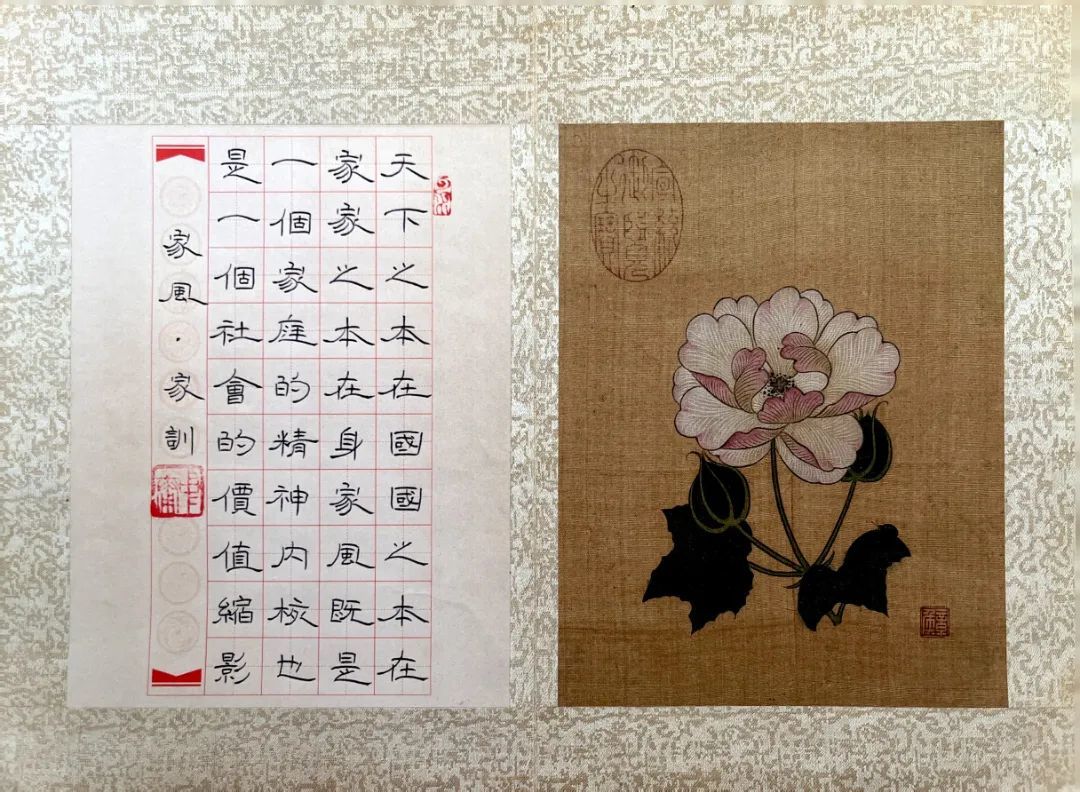 天下之本在國國之本在
家家之本在身家風既是
一個家庭的精神内核也
是一個社會的價值縮影
家風·家訓